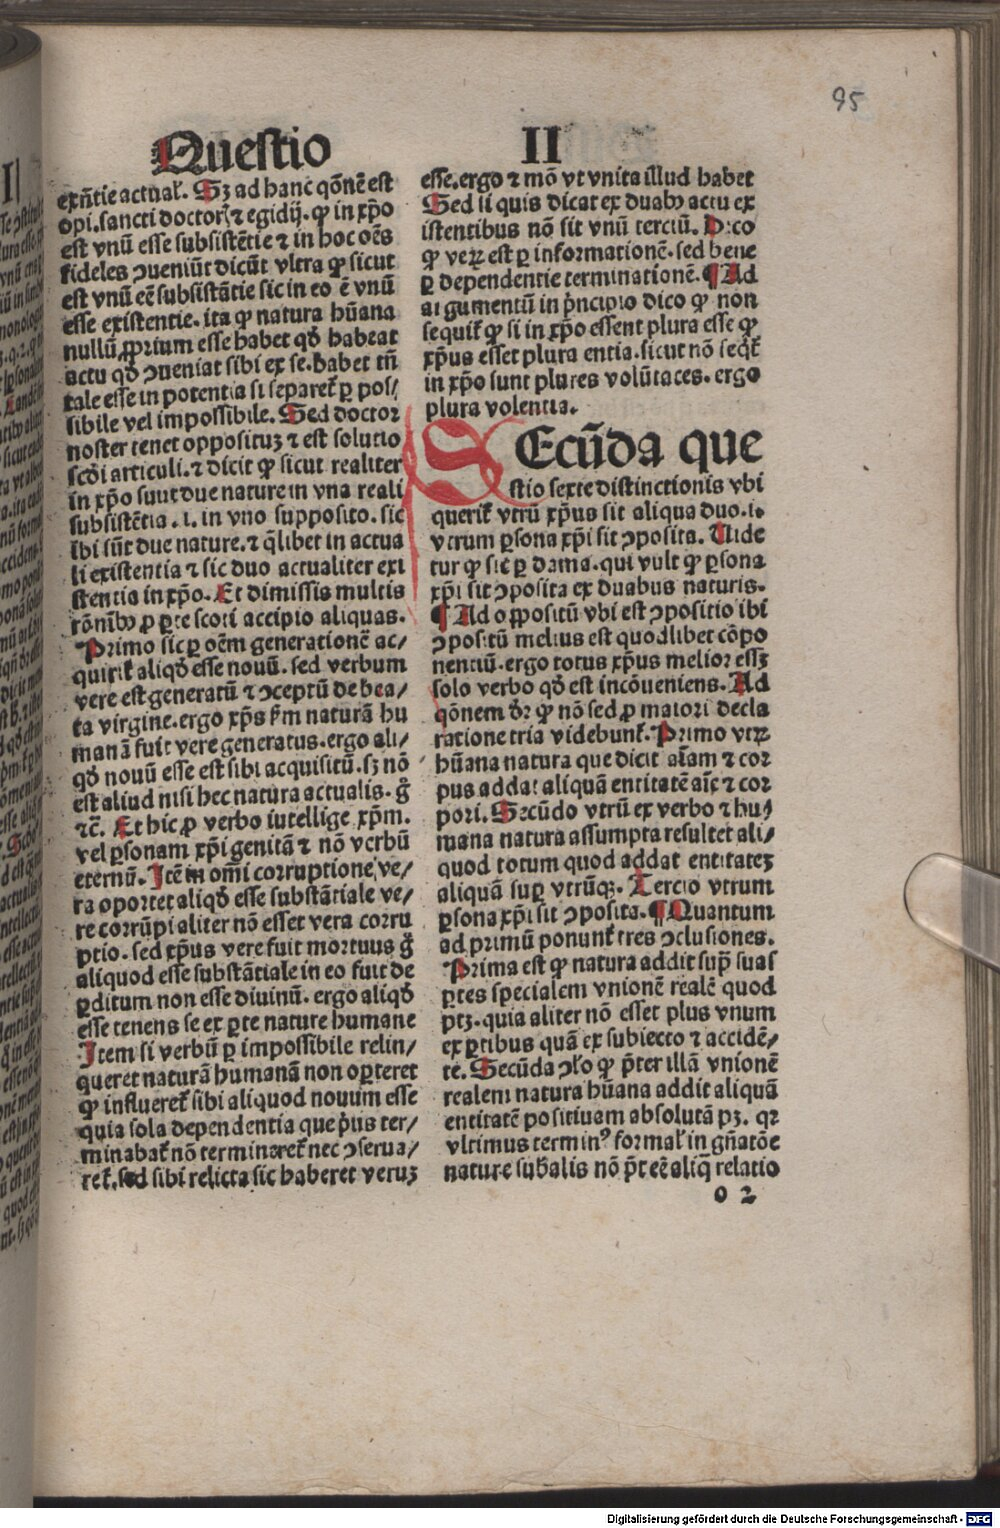 95
Questio II
exñtie actual᷑. Sꝫ ad hanc qõnẽ est
opi. sancti doctor᷑ ⁊ egidij. ꝙ in xp̃o
est vnũ esse subsistẽtie ⁊ in hoc oẽs
fideles ↄueniũt dicũt vltra ꝙ sicut
est vnũ eẽ subsistãtie sic in eo ẽ vnũ
esse existentie. ita ꝙ natura hũana
nullũ ꝓprium esse habet qđ habeat
actu qđ ↄueniat sibi ex se. habet tñ
tale esse in potentia si separet᷑ ꝑ pos/
sibile vel impossibile. Sed doctor
noster tenet opposituꝫ ⁊ est solutio
scđi articuli. ⁊ dicit ꝙ sicut realiter
in xp̃o sunt due nature in vna reali
subsistẽtia .i. in vno supposito. sic
ibi sũt due nature. ⁊ q̃libet in actua
li existentia ⁊ sic duo actualiter exi
stentia in xp̃o. Et dimissis multis
rõnibꝰ ꝓ ꝑte scoti accipio aliquas.
Primo sic ꝑ oẽm generationẽ ac/
quirit᷑ aliqđ esse nouũ. sed verbum
vere est generatũ ⁊ ↄceptũ de bea/
ta virgine. ergo xp̃s km̃ naturã hu
manã fuit vere generatus. ergo ali/
qđ nouũ esse est sibi acquisitũ. sꝫ nõ
est aliud nisi hec natura actualis. g̃
⁊c̃. Et hic ꝓ verbo intellige xp̃m.
vel ꝑsonam xp̃i genitã ⁊ nõ verbũ
eternũ. Itẽ in omĩ corruptione ve/
ra oportet aliqđ esse substãtiale ve/
re corrũpi aliter nõ esset vera corru
ptio. sed xp̃us vere fuit mortuus g̃
aliquod esse substãtiale in eo fuit de
ꝑditum non esse diuinũ. ergo aliqđ
esse tenens se ex ꝑte nature humane
Item si verbũ ꝑ impossibile relin/
queret naturã humanã non oꝑteret
ꝙ influeret᷑ sibi aliquod nouum esse
quia sola dependentia que p̃us ter/
minabat᷑ nõ terminaret᷑ nec ↄserua/
ret᷑. sed sibi relicta sic haberet veruꝫ
esse. ergo ⁊ mõ vt vnita illud habet
Sed si quis dicat ex duabꝰ actu ex
istentibus nõ sit vnũ terciũ. Dico
ꝙ verꝝ est ꝑ informationẽ. sed bene
ꝑ dependentie terminationẽ. ¶ Ad
argumentũ in p̃ncipio dico ꝙ non
sequit᷑ ꝙ si in xp̃o essent plura esse ꝙ
xp̃us esset plura entia. sicut nõ seqt᷑
in xp̃o sunt plures volũtates. ergo
plura volentia.
SEcũda que
stio sexte distinctionis vbi
querit᷑ vtrũ xp̃us sit aliqua duo. i.
vtrum ꝑsona xp̃i sit ↄposita. Uide
tur ꝙ sic ꝑ dama. qui vult ꝙ ꝑsona
xp̃i sit ↄposita ex duabus naturis.
¶ Ad oppositũ vbi est ↄpositio ibi
ↄpositũ melius est quodlibet cõpo
nentiũ. ergo totus xp̃us melior essꝫ
solo verbo qđ est incõueniens. Ad
qõnem dr̃ ꝙ nõ sed ꝓ maiori decla
ratione tria videbunt᷑. Primo vtꝝ
hũana natura que dicit aĩam ⁊ cor
pus addat aliquã entitatẽ aĩe ⁊ cor
pori. Secũdo vtrũ ex verbo ⁊ hu/
mana natura assumpta resultet ali/
quod totum quod addat entitateꝫ
aliquã suꝑ vtrũqꝫ. Tercio vtrum
ꝑsona xp̃i sit ↄposita. ¶ Quantum
ad primũ ponunt᷑ tres ↄclusiones.
Prima est ꝙ natura addit sup̃ suas
ꝑtes specialem vnionẽ realẽ quod
ptꝫ. quia aliter nõ esset plus vnum
ex ꝑtibus quã ex subiecto ⁊ accidẽ/
te. Secũda ↄĩo ꝙ p̃ter illã vnionẽ
realem natura hũana addit aliquã
entitatẽ positiuam absolutã pꝫ. qꝛ
vltimus terminꝰ formal᷑ in gñatõe
nature sub̃alis nõ p̃t eẽ aliq̃ relatio
o 2
Digitalisierung gefördert durch die Deutsche Forschungsgemeinschaft - DFG